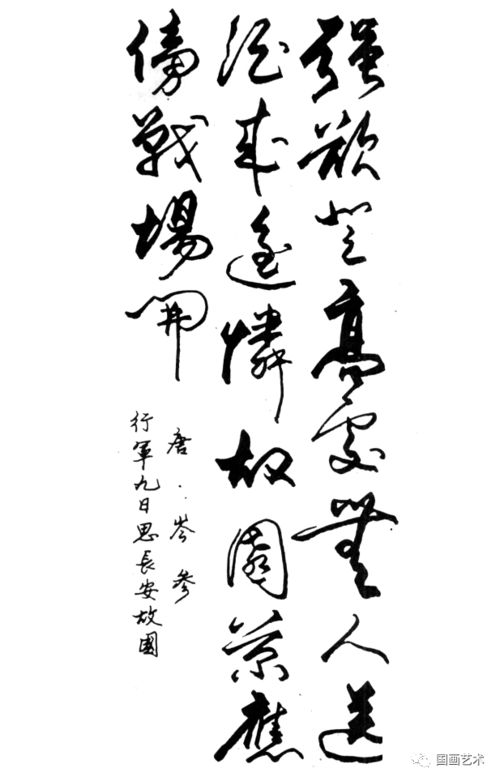 強欲登高處無人送
酒來遙憐故園菊應
傍戰場開
唐·岑參
行軍九日思長安故園
国画艺术